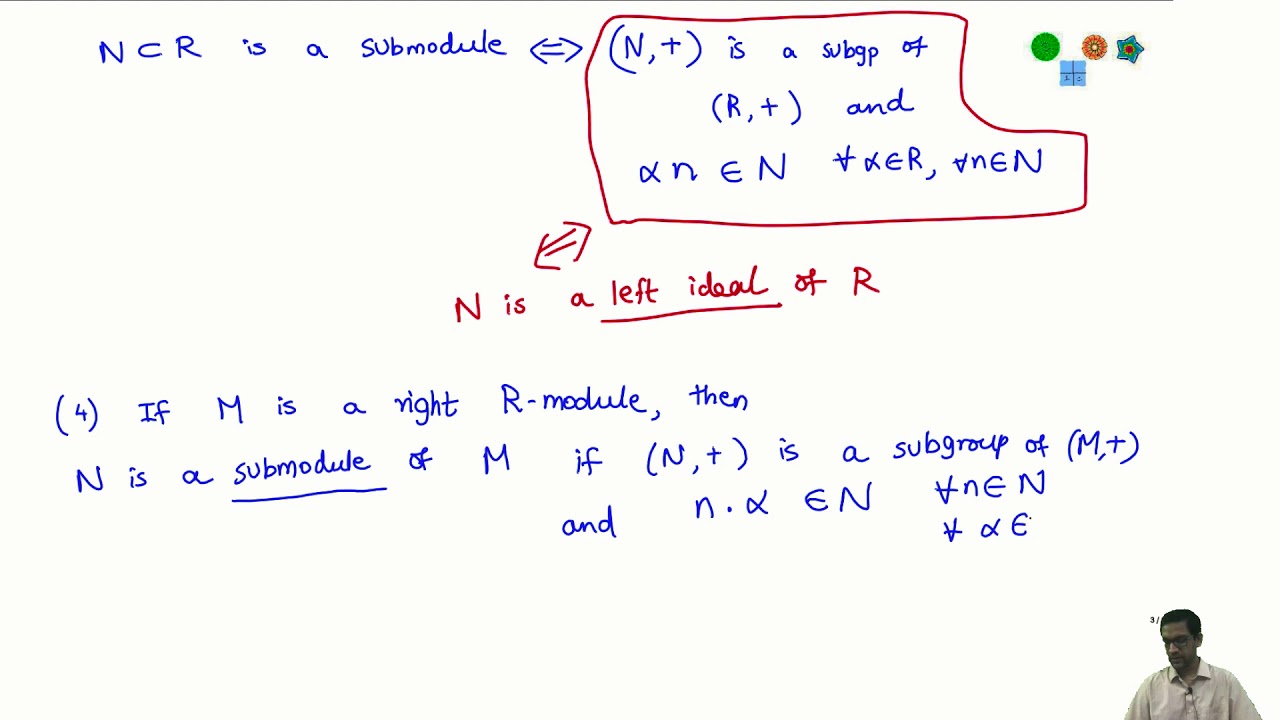 N ⊂ R is a submodule ⟺ (N,+) is a subgp of
(R,+) and
αn ∈ N ∀ α∈R, ∀n∈N
⟺
N is a left ideal of R
(4) If M is a right R-module, then
N is a submodule of M if (N,+) is a subgroup of (M,+)
and n.α ∈ N ∀n∈N
∀ α∈
3/